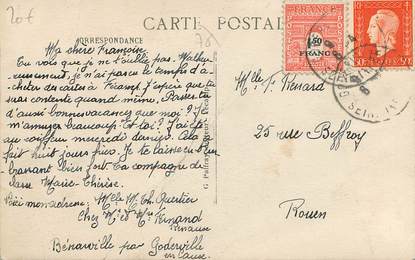 20€
78
CORRESPONDANCE
CARTE POSTALE
Ma chère Françoise,
Tu vois que je ne t'oublie pas. Malheu-
reusement, je n'ai pas eu le temps d'a-
cheter des cartes à J'espère que tu
seras contente quand même. Passes-tu
d'aussi bonnes vacances que moi? Je
m'amuse beaucoup. Et toi? J'ai été
au coiffeur mercredi dernier. Cela
fait huit jours pris. Je te laisse en t'em-
brassant bien fort. Ta compagne de
classe Marie-Thérèse.
Voici mon adresse: Melle M. Th. Quertier
Chez Mr et Mme Renand
Bénarville par Goderville
en Caux
Melle F. Renard
25 rue Beffroy
Rouen
1F50
FRANC